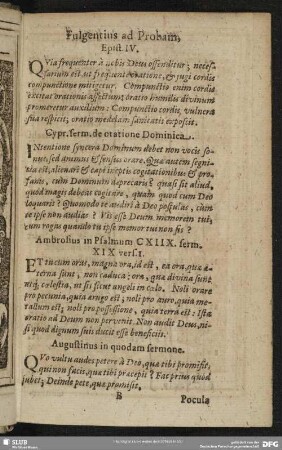 Fulgentius ad Probam,
Epist. IV.
QVia frequenter à nobis Deus offenditur; neces-
sarium est ut frequenti oratione, & jugi cordis
compunctione mitigetur. Compunctio enim cordis
excitat orationis affectum; oratio humilis divinum
promeretur auxilium: Compunctio cordis, vulnera
sua respicit; oratio medelam sanitatis exposcit.
Cypr. serm. de oratione Dominica.
INtentione syncera Dominum debet non vocis so-
nus, sed animus & sensus orare. Quæ autem segni-
tia est, alienari & cape ineptis cogitationibus & pro-
fanis, cum Dominum deprecaris? quasi sit aliud,
quod magis debeas cogitare, quam quod cum Deo
loquaris? Quomodo te audiri à Deo postulas, cum
te ipse non audias? Vis esse Deum memorem tui,
cum rogas quando tu ipse memor tui non sis?
Ambrosius in Psalmum CXIIX. serm.
XIX vers. 1.
ET tu cum oras, magna ora, id est, ea ora, quæ æ-
terna sunt, non caduca: ora, quæ divina sunt
atq; cœlestia, ut sis sicut angeli in cœlo. Noli orare
pro pecunia, quia ærugo est; noli pro auro, quia me-
tallum est; noli pro possessione, quia terra est: Ista
oratio ad Deum non pervenit. Non audit Deus, ni-
si quod dignum suis ducit esse beneficiis.
Augustinus in quodam sermone.
QVo vultu audes petere à Deo, quæ tibi promisit,
qui non facis, quæ tibi præcepit? Fac prius quod
jubet; Deinde pete, quæ promisit.
B
Pocula
SLUB
Wir führen Wissen.
DFG